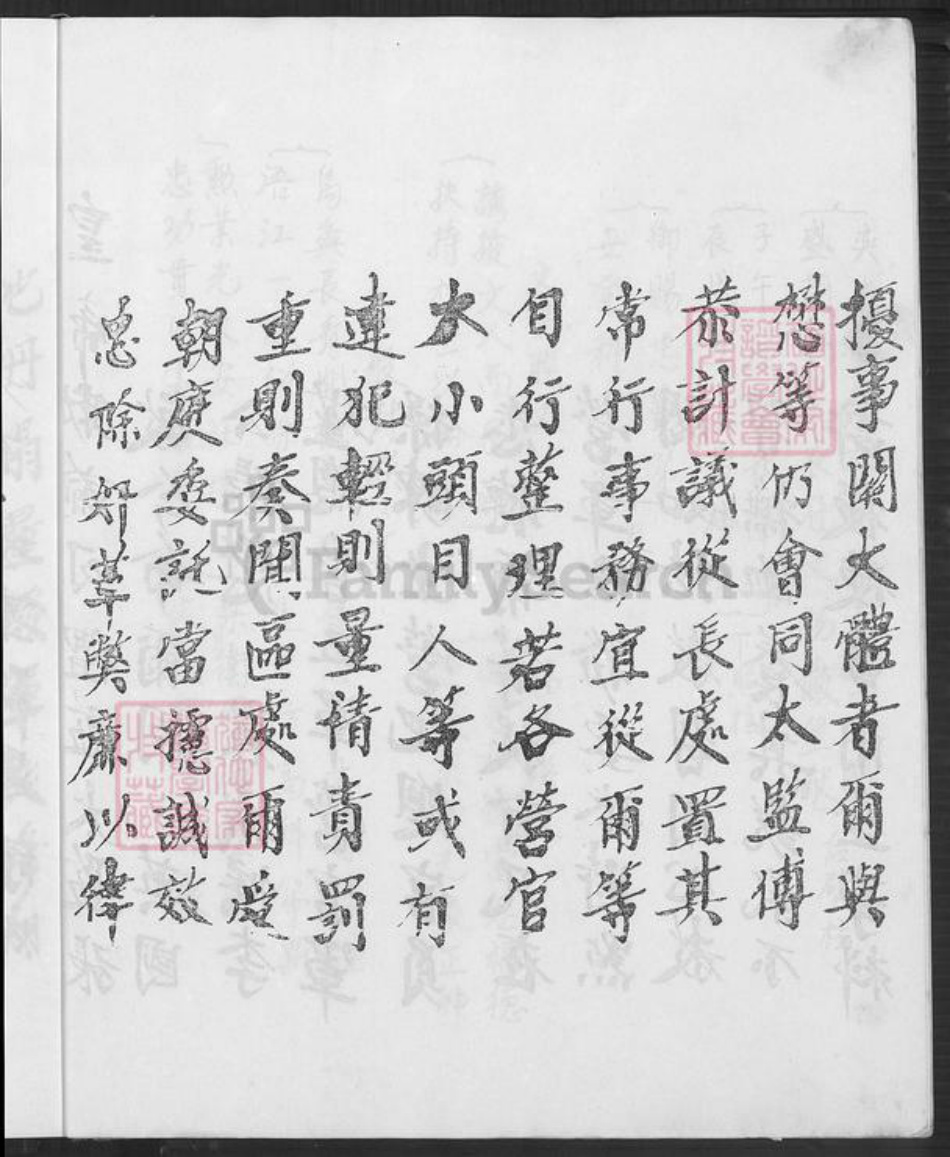 擾事関大體者爾與
懋等仍會同太監傅
恭計議從長處置其
常行事務宜從爾等
自行整理若各營官
大小頭目人等或有
違犯輕則量情責罰
重則奏聞區處爾受
朝庭委託當攄誠效
忠除奸革獘廉以律
FamilySearch